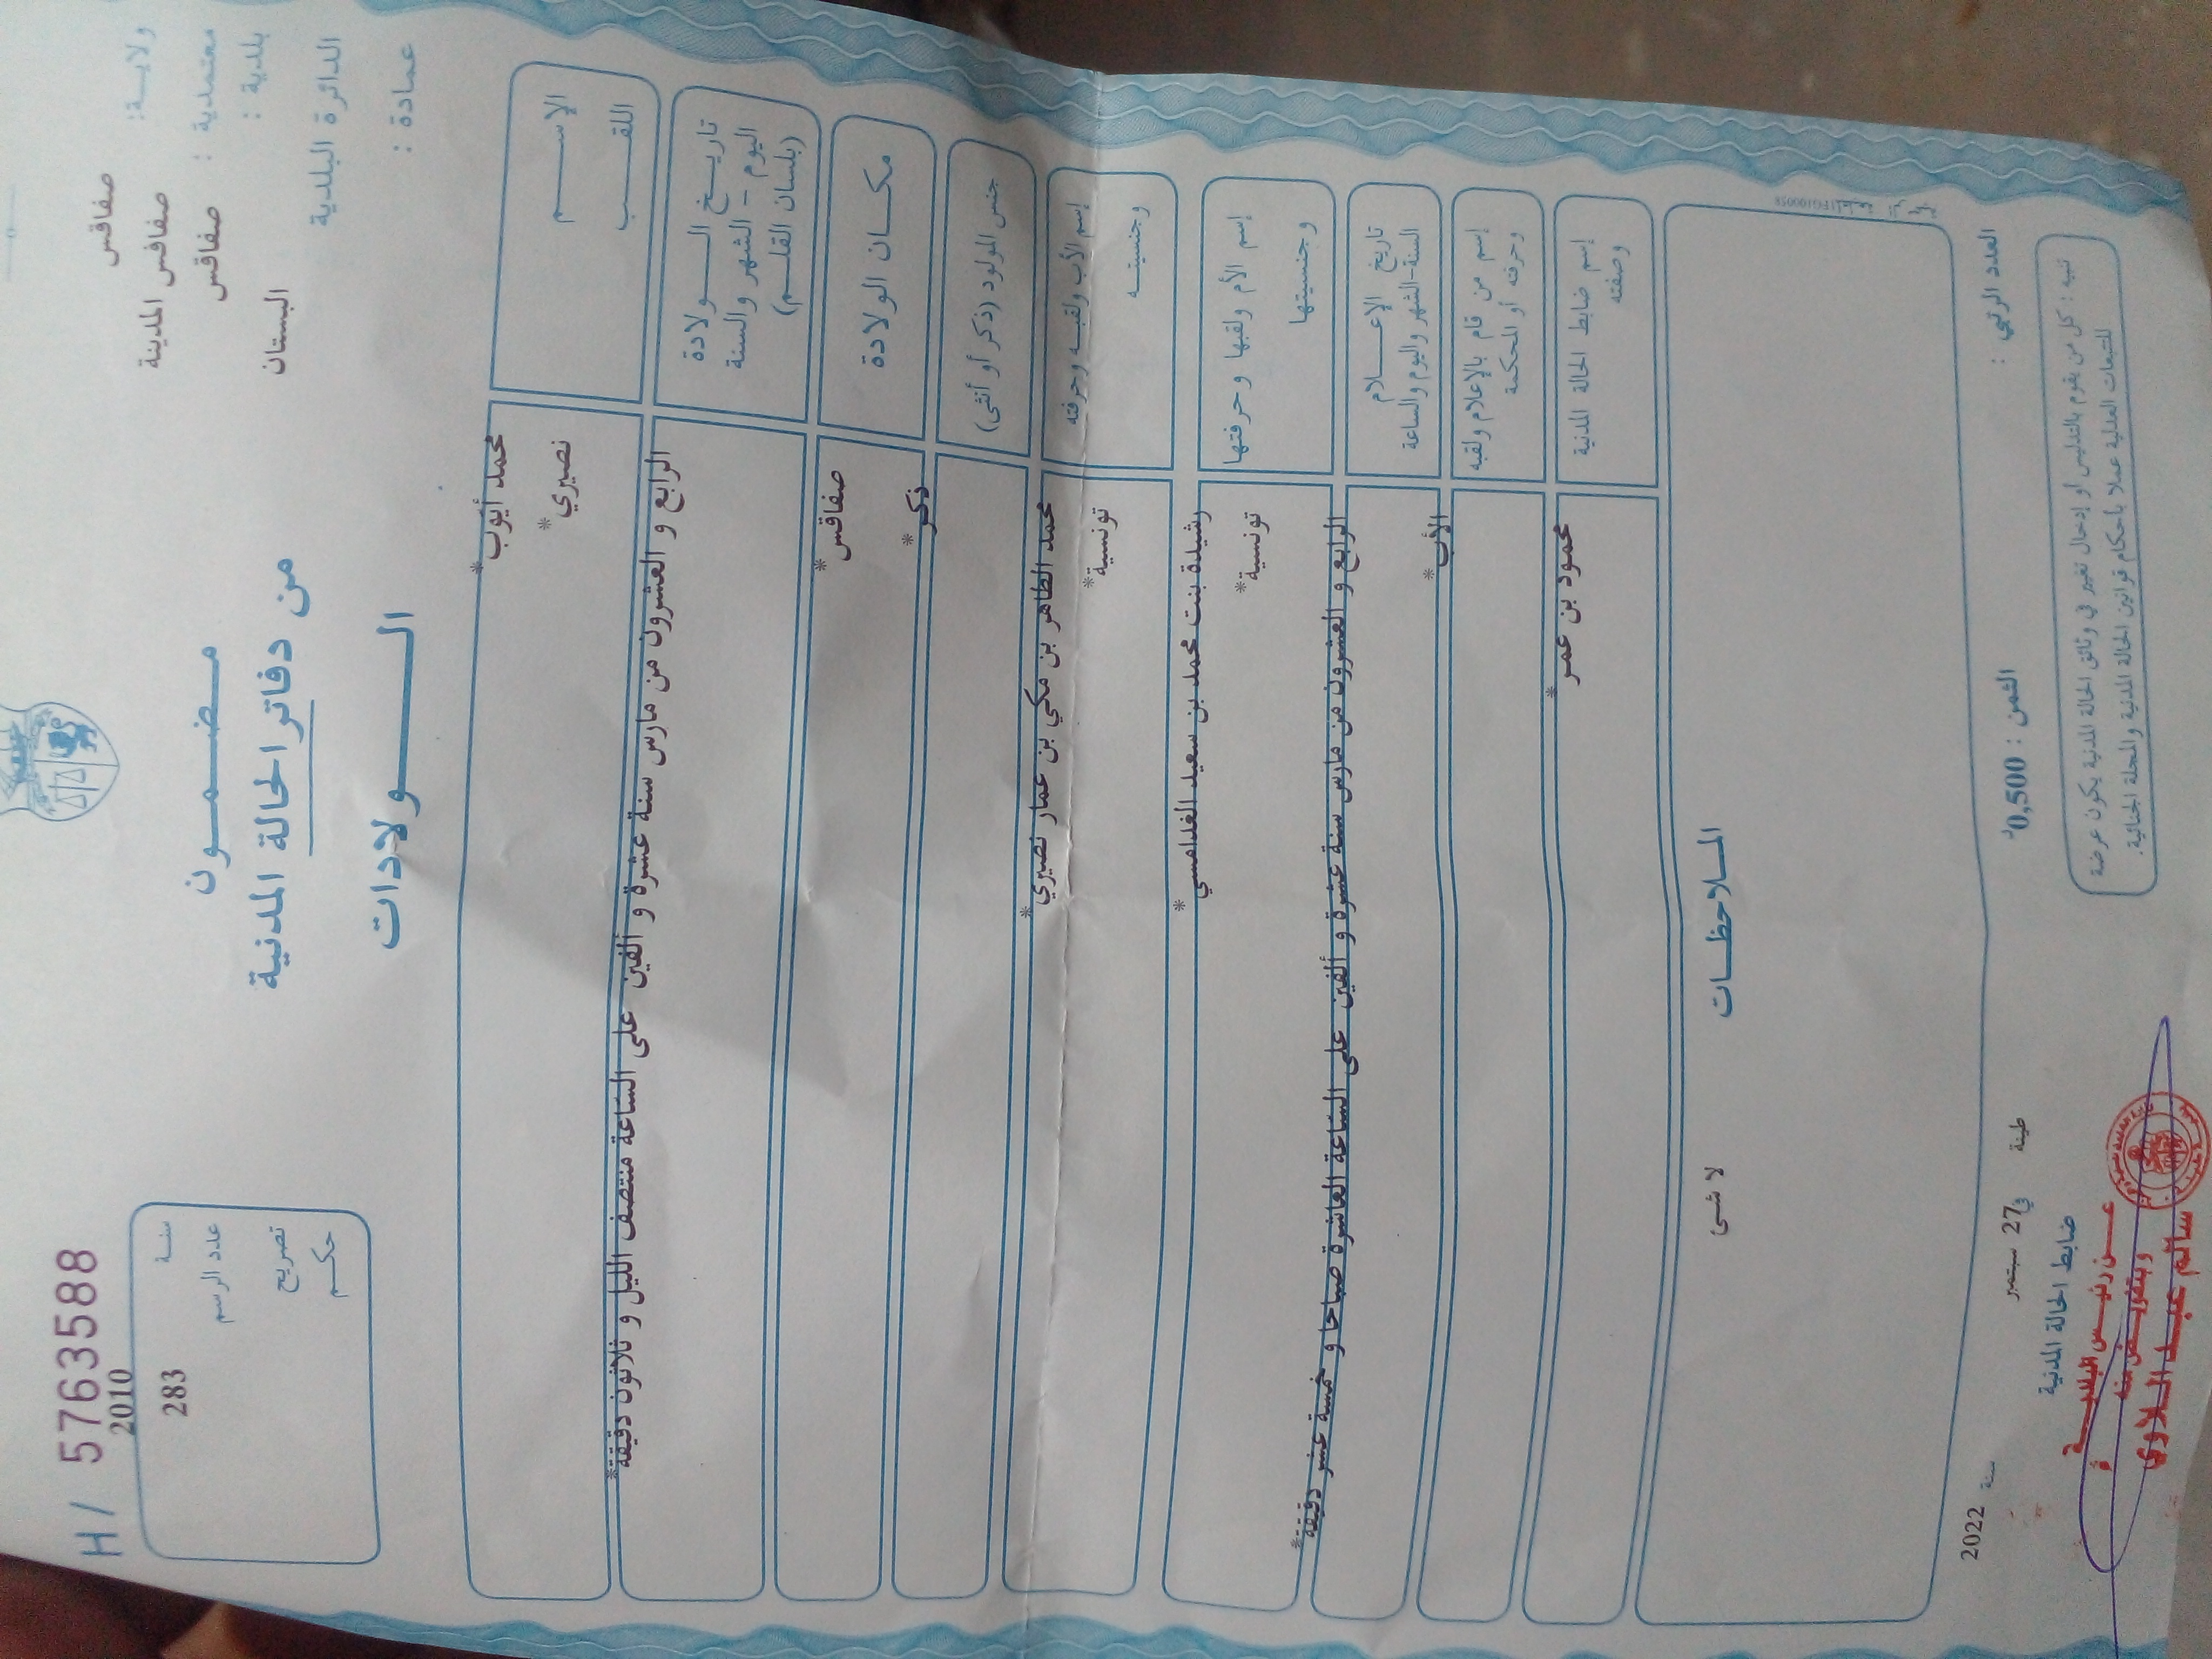 H / 5763588
ولايـــة: صفاقس
معتمدية : صفاقس المدينة
بلدية : صفاقس
الدائرة البلدية البستان
عمادة :
2010
سنـــة
عدد الرسم 283
تصريح
حكـــم
مـــضـــمـــون
من دفاتر الحالة المدنية
الـــــولادات
الإســــــم محمد أيوب*
اللقــــب نصيري*
تاريـــخ الـــــولادة
اليوم - الشهر والسنة
(بلسان القلـــم)
الرابع و العشرون من مارس سنة عشرة و ألفين على الساعة منتصف الليل و ثلاثون دقيقة*
مكـــان الولادة صفاقس*
جنس المولود (ذكر أو أنثى) ذكر*
إسم الأب ولقبـــه وحرفته محمد الطاهر بن مكي بن عمار نصيري*
وجنسيتـــه تونسية*
إسم الأم ولقبها وحرفتها رشيدة بنت محمد بن سعيد الغدامسي*
وجنسيتها تونسية*
تاريخ الإعـــــلام
السنة-الشهر واليوم والساعة
الرابع و العشرون من مارس سنة عشرة و ألفين على الساعة العاشرة صباحا و خمسة عشر دقيقة*
إسم من قام بالإعلام ولقبه
وحرفته أو المحكمة
الأب*
إسم ضابط الحالة المدنية
وصفته
محمود بن عمر*
المـــلاحظـــات
لا شئ
العدد الرتبي :
الثمن : 0,500د
طينة في27 سبتمبر سنة 2022
ضابط الحالة المدنية
تنبيه : كل من يقوم بالتدليس أو إدخال تغيير في وثائق الحالة المدنية يكون عرضة
للتتبعات العدلية عملا بأحكام قوانين الحالة المدنية والمجلة الجنائية.
عـــن رئيـــس البلديـــة
وبتفويـــض منه
سالم عبـــد الـــلاوي